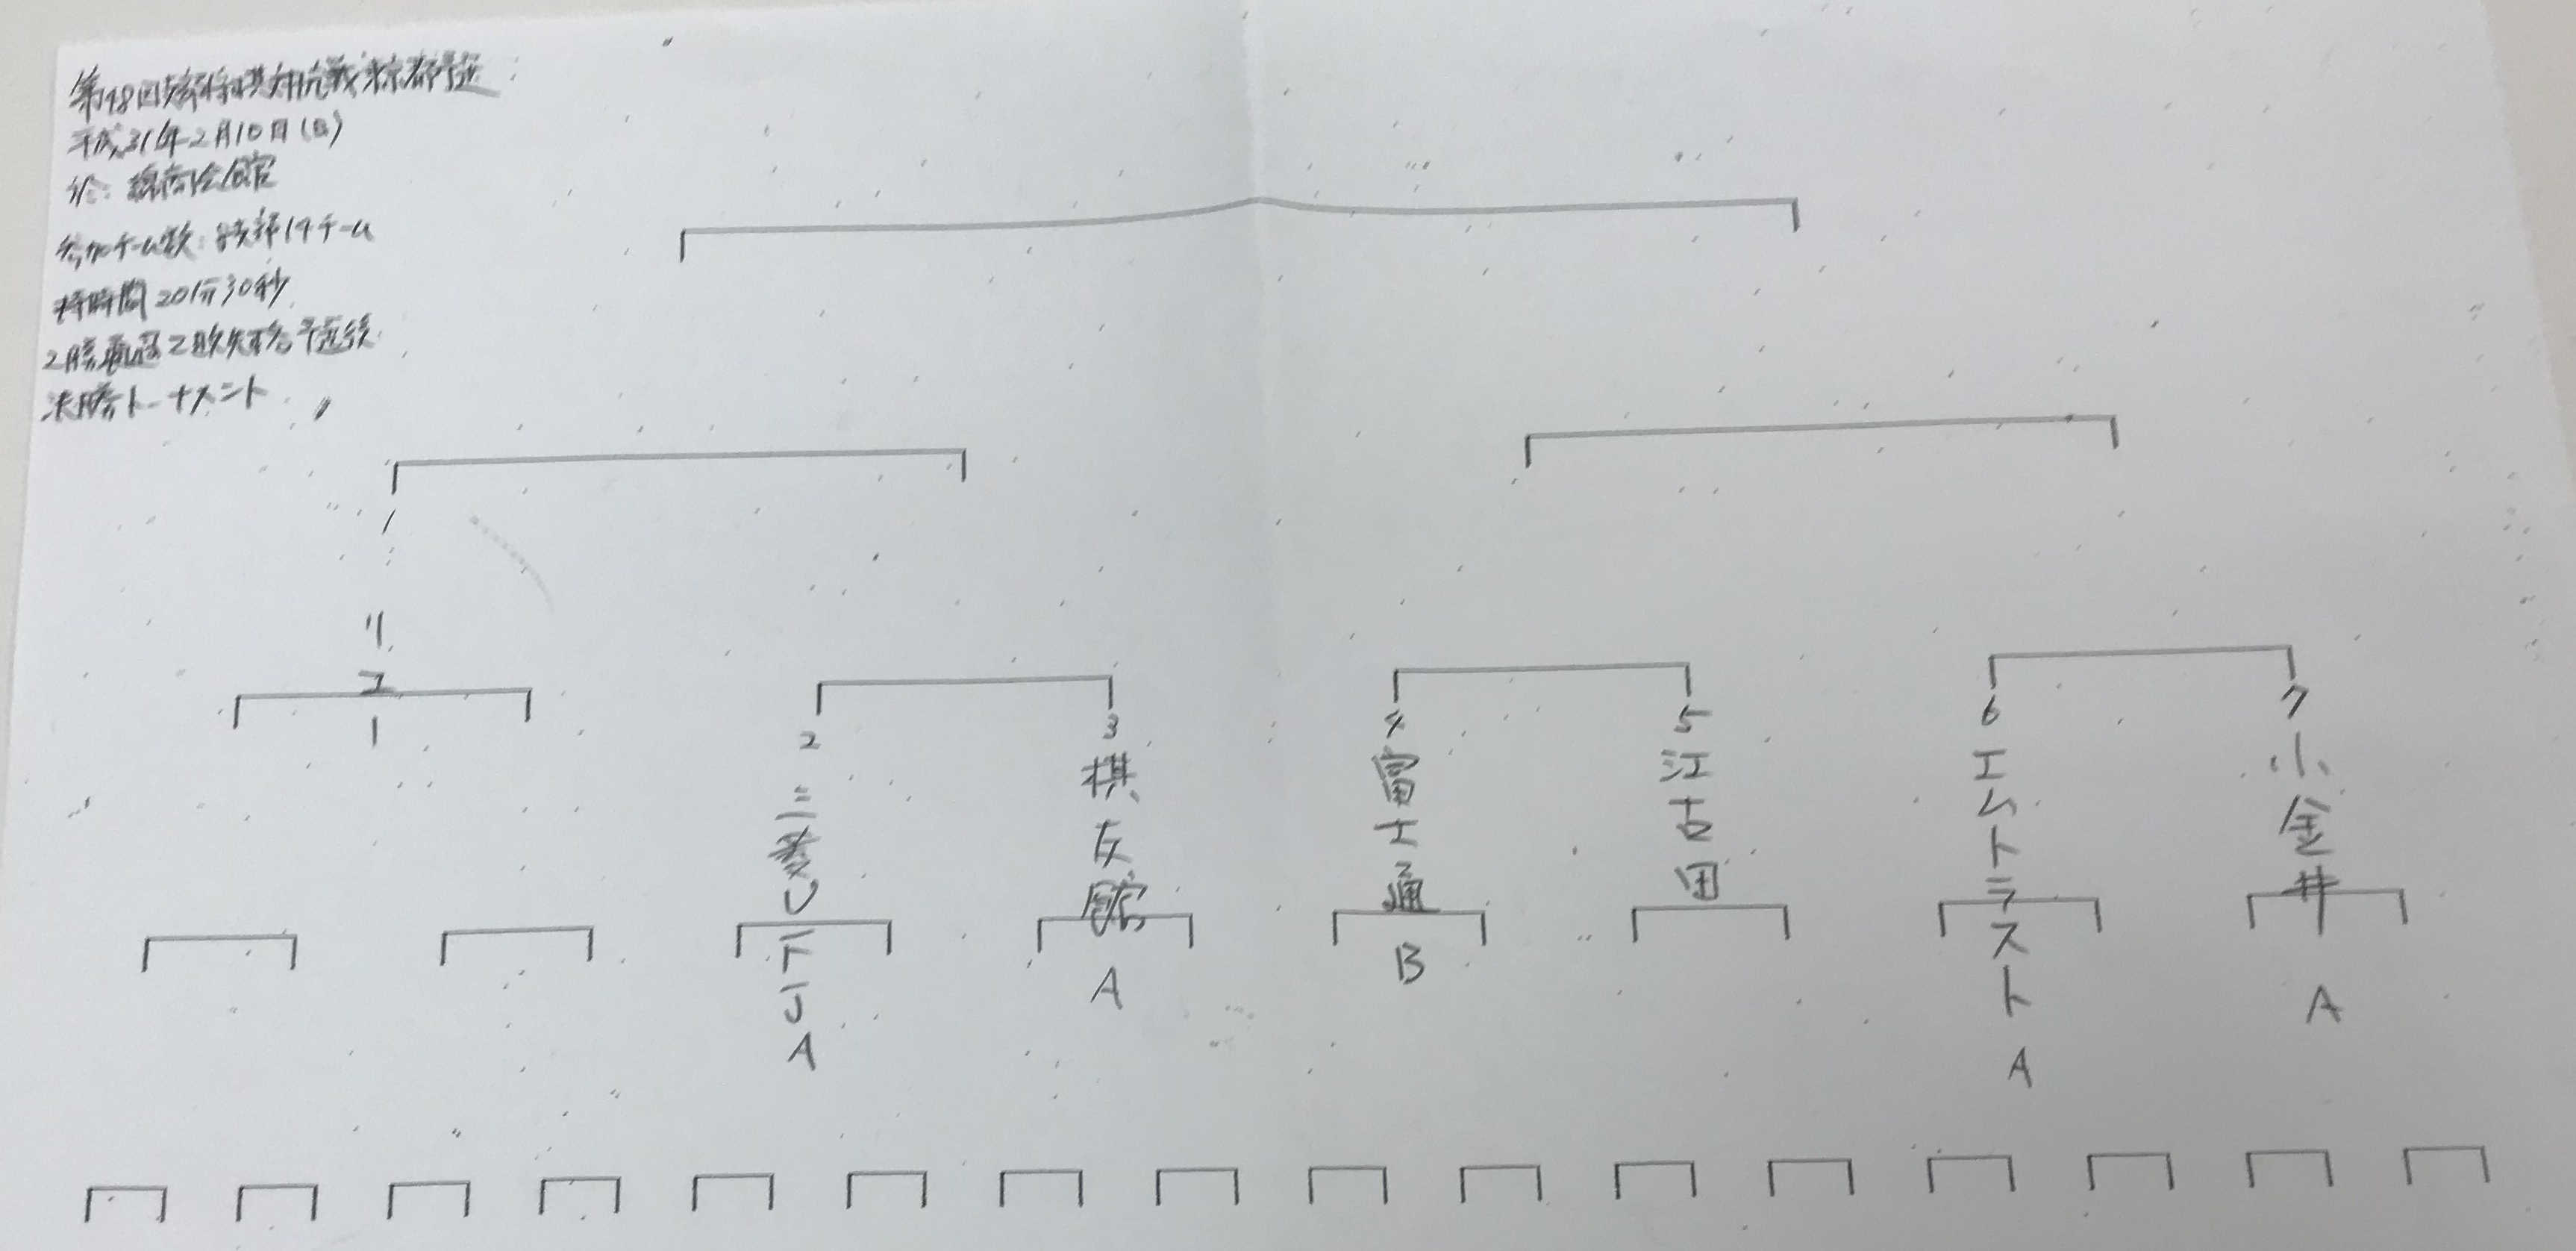 第48回支部将棋対抗戦東京都予選
平成31年2月10日(日)
於: 
参加チーム数: 支部17チーム
持時間20分30秒
2勝通過2敗失格予選後
決勝トーナメント
1 リコー
2 三菱UFJ A
3 棋友館 A
4 富士通 B
5 江古田
6 エムトラスト A
7 小金井 A